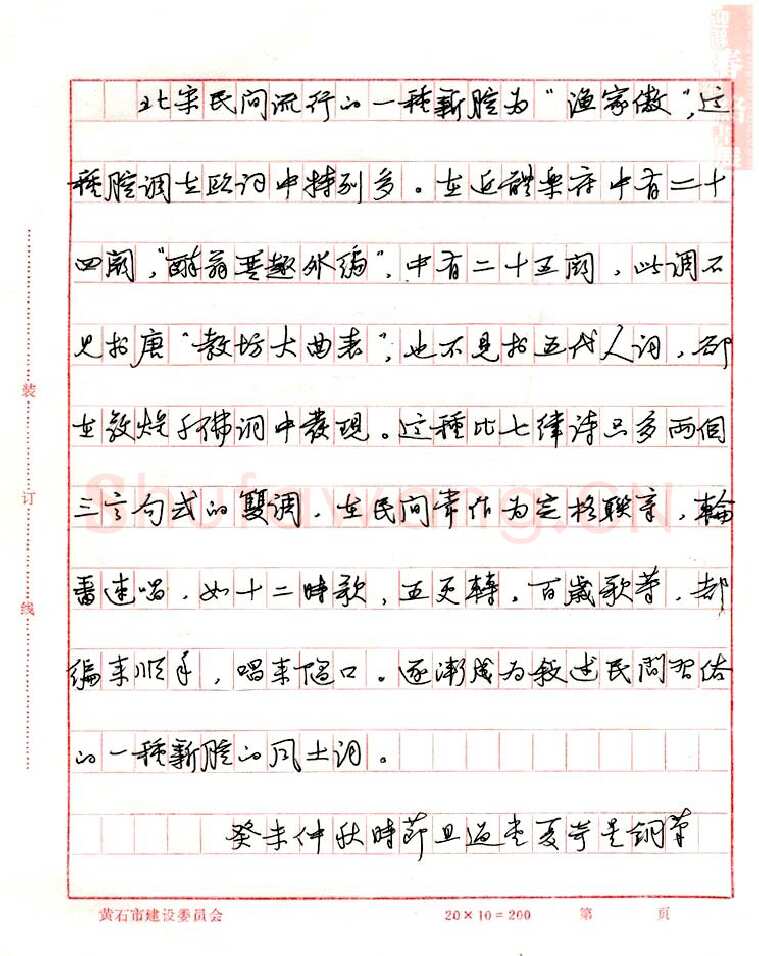 北宋民间流行的一種新腔为“渔家傲”,这
種腔调在欧词中特别多。在近體樂府中有二十
四阕,“醉翁琴趣外編”,中有二十五阕,此调不
見於唐“教坊大曲表”,也不見於五代人词,却
在敦煌佛词中發現。这種比七律诗只多兩個
三言句式的雙调,在民间常作为定格聯章,輪
番速唱,如十二時歌,五更轉,百歲歌等,都
編来順手,唱来順口。逐漸成为叙述民間習俗
的一種新腔的风土词。
癸未仲秋時節
装
订
线
黄石市建设委员会
20×10=200
第
页
Shufawang.CN